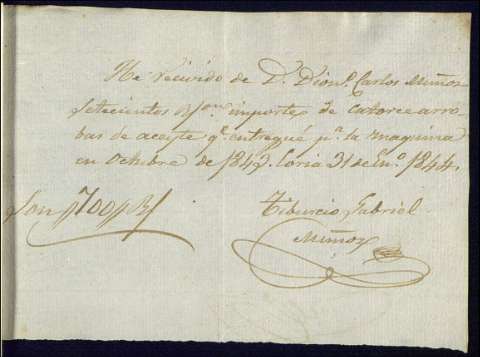 He recivido de D. Dion.º Carlos Muñoz
Setecientos R.s von importe de catorce arro-
bas de aceyte q.e entregué p.a la maquina
en Octubre de 1843. Soria 31 de En.º 1844.
Son 700 Rs
Tiburcio Gabriel
Muñoz